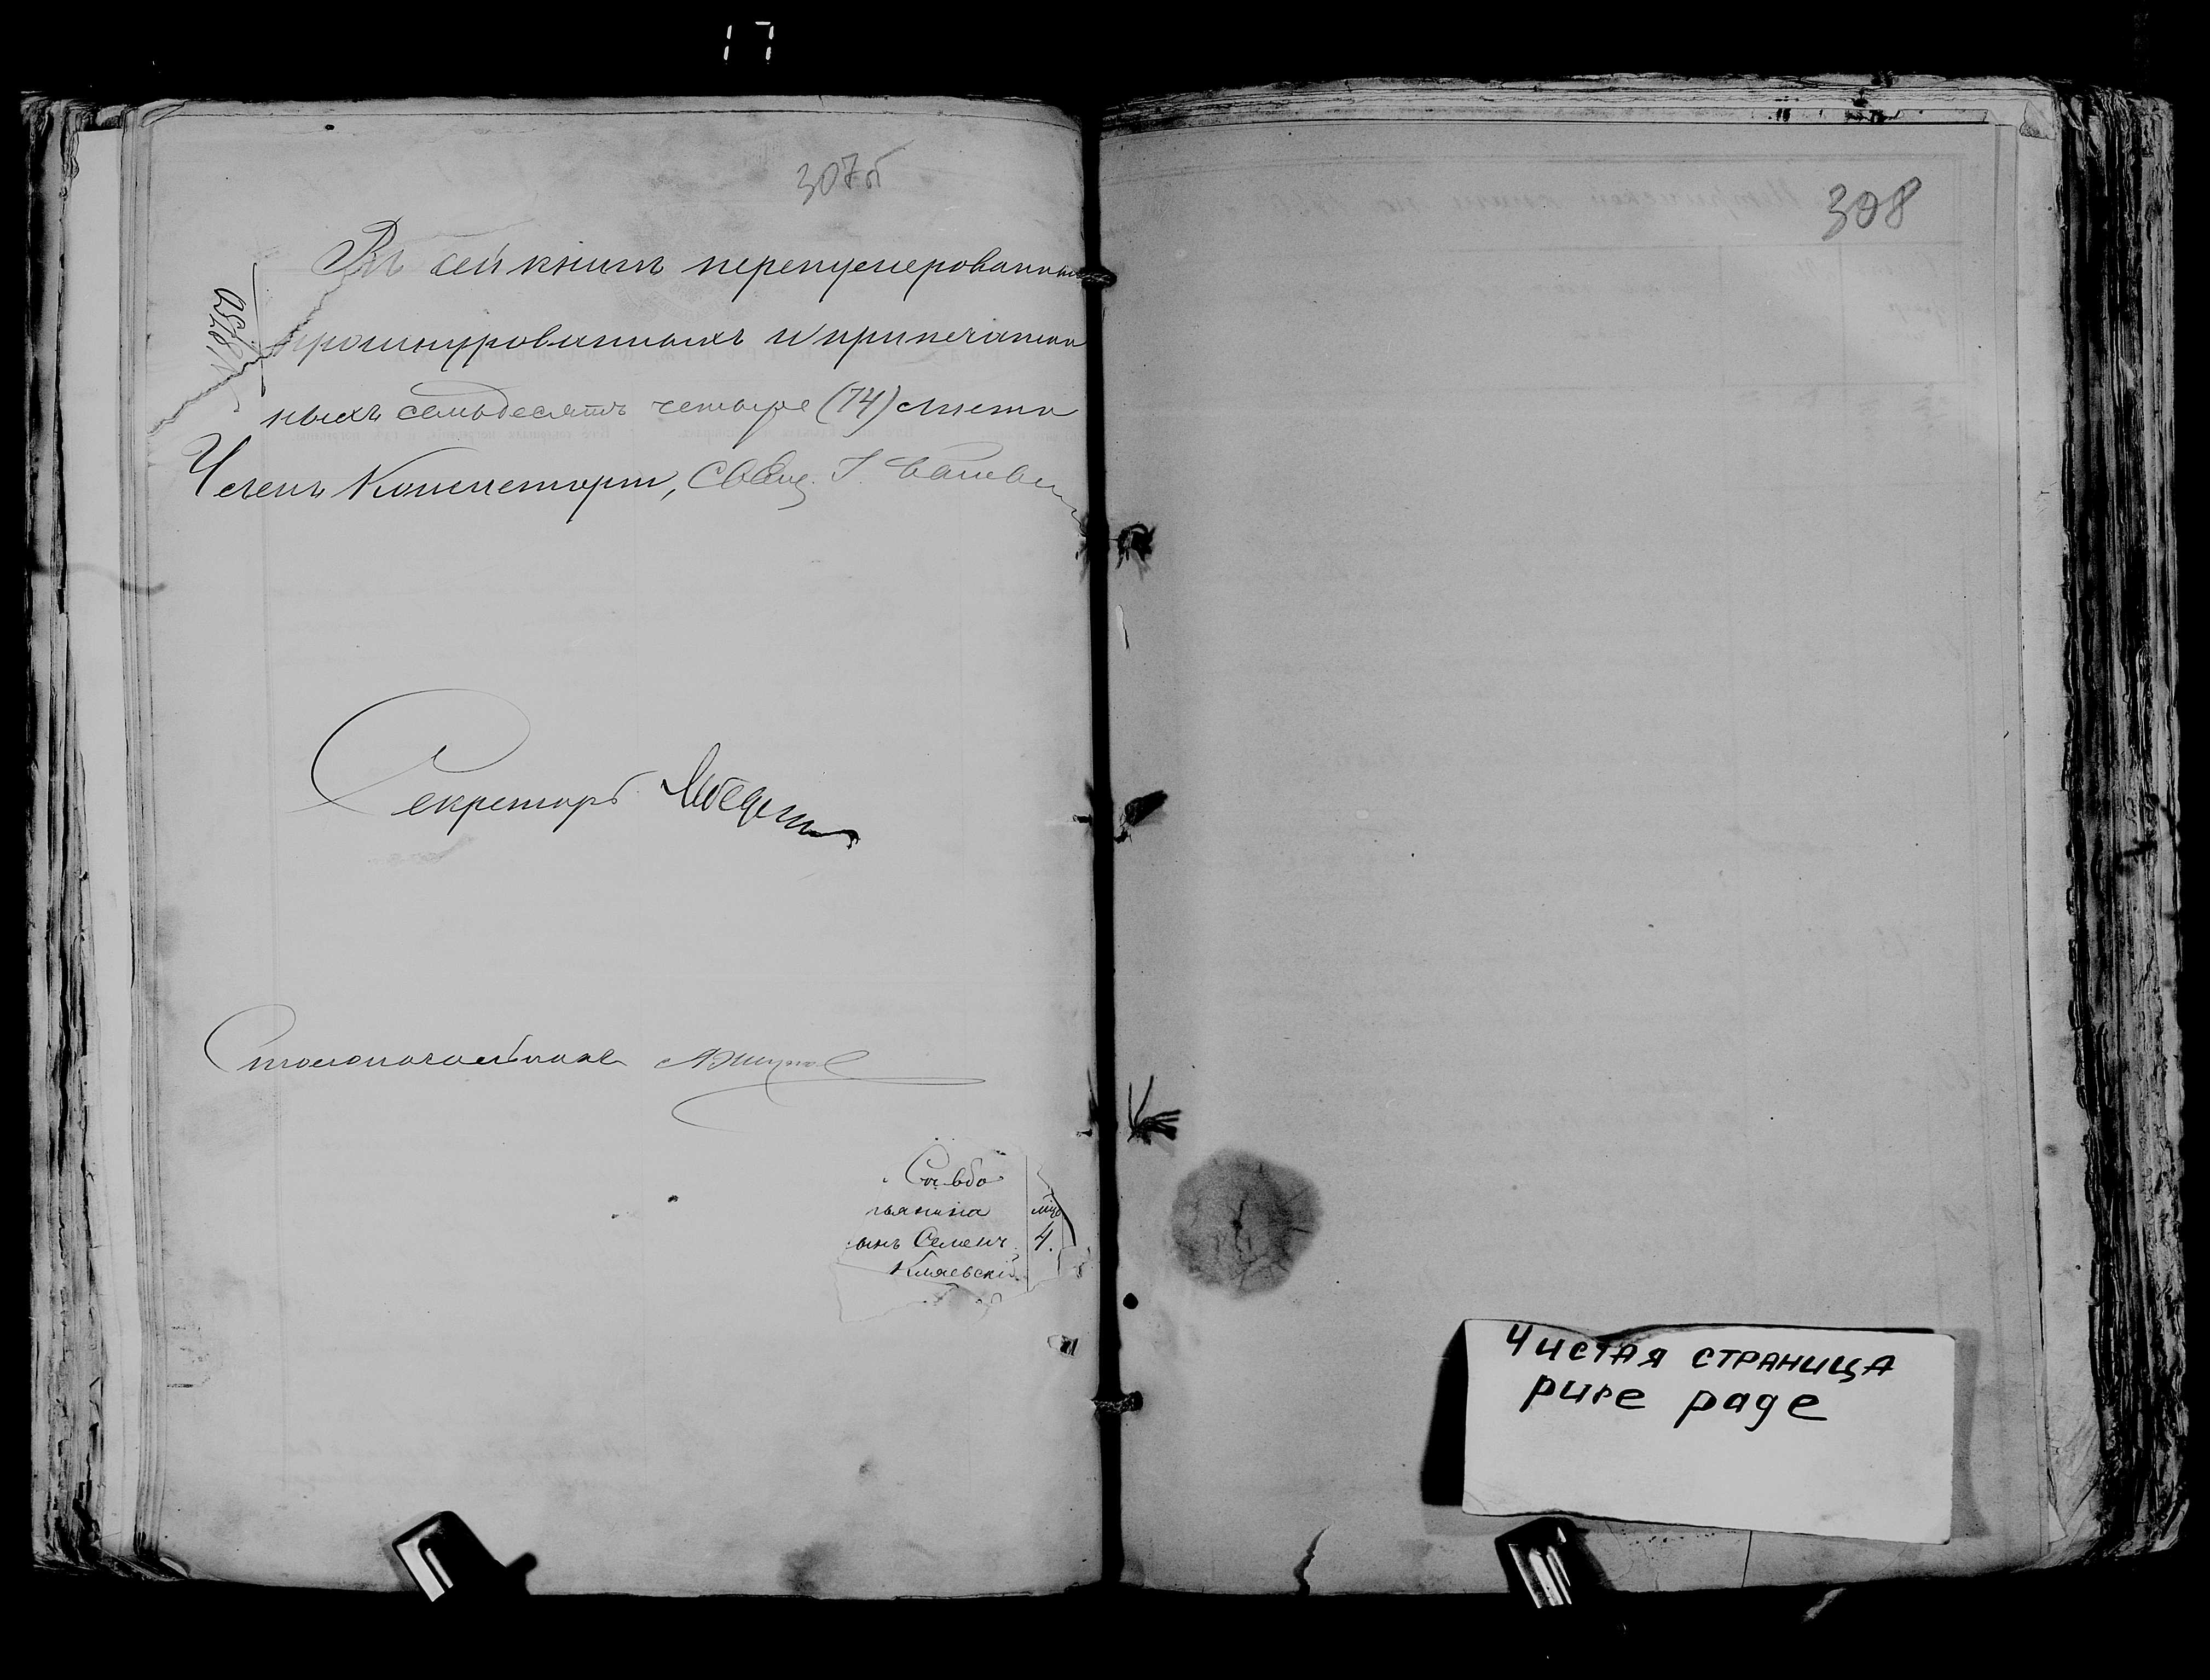 17
307об
Въ сей книгѣ перенумерованны
прошнурованныхъ и припечатан
ныхъ семьдесятъ четыре (74) листа
Членъ Консисторіи, Свящ. І.
Секретарь
Столоначальникъ
Свадьбо
ынъ Семенъ 4.
308
Чистая страница
pure page